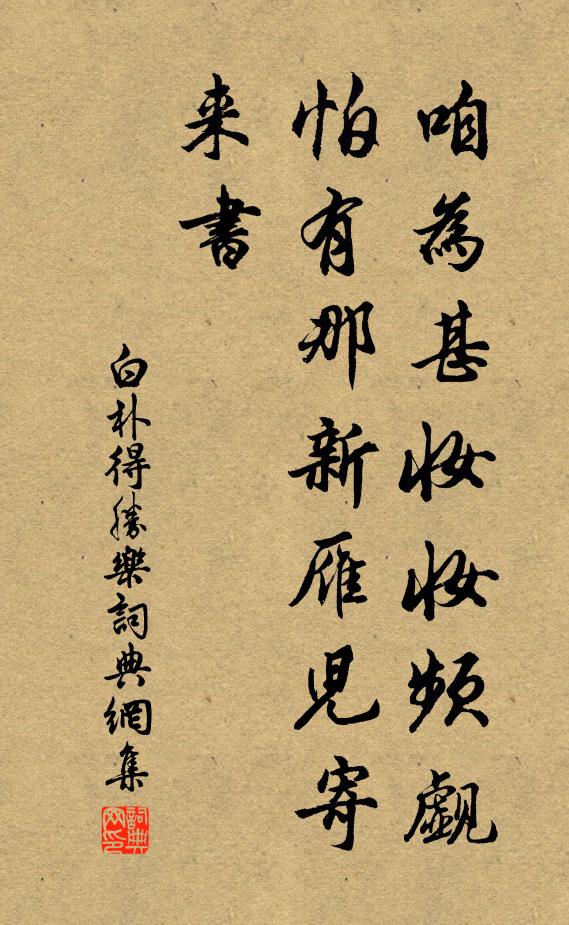 咱為甚妝妝頻覷
怕有那新雁兒寄
来書
白朴得勝樂詞典網集
詞典网印